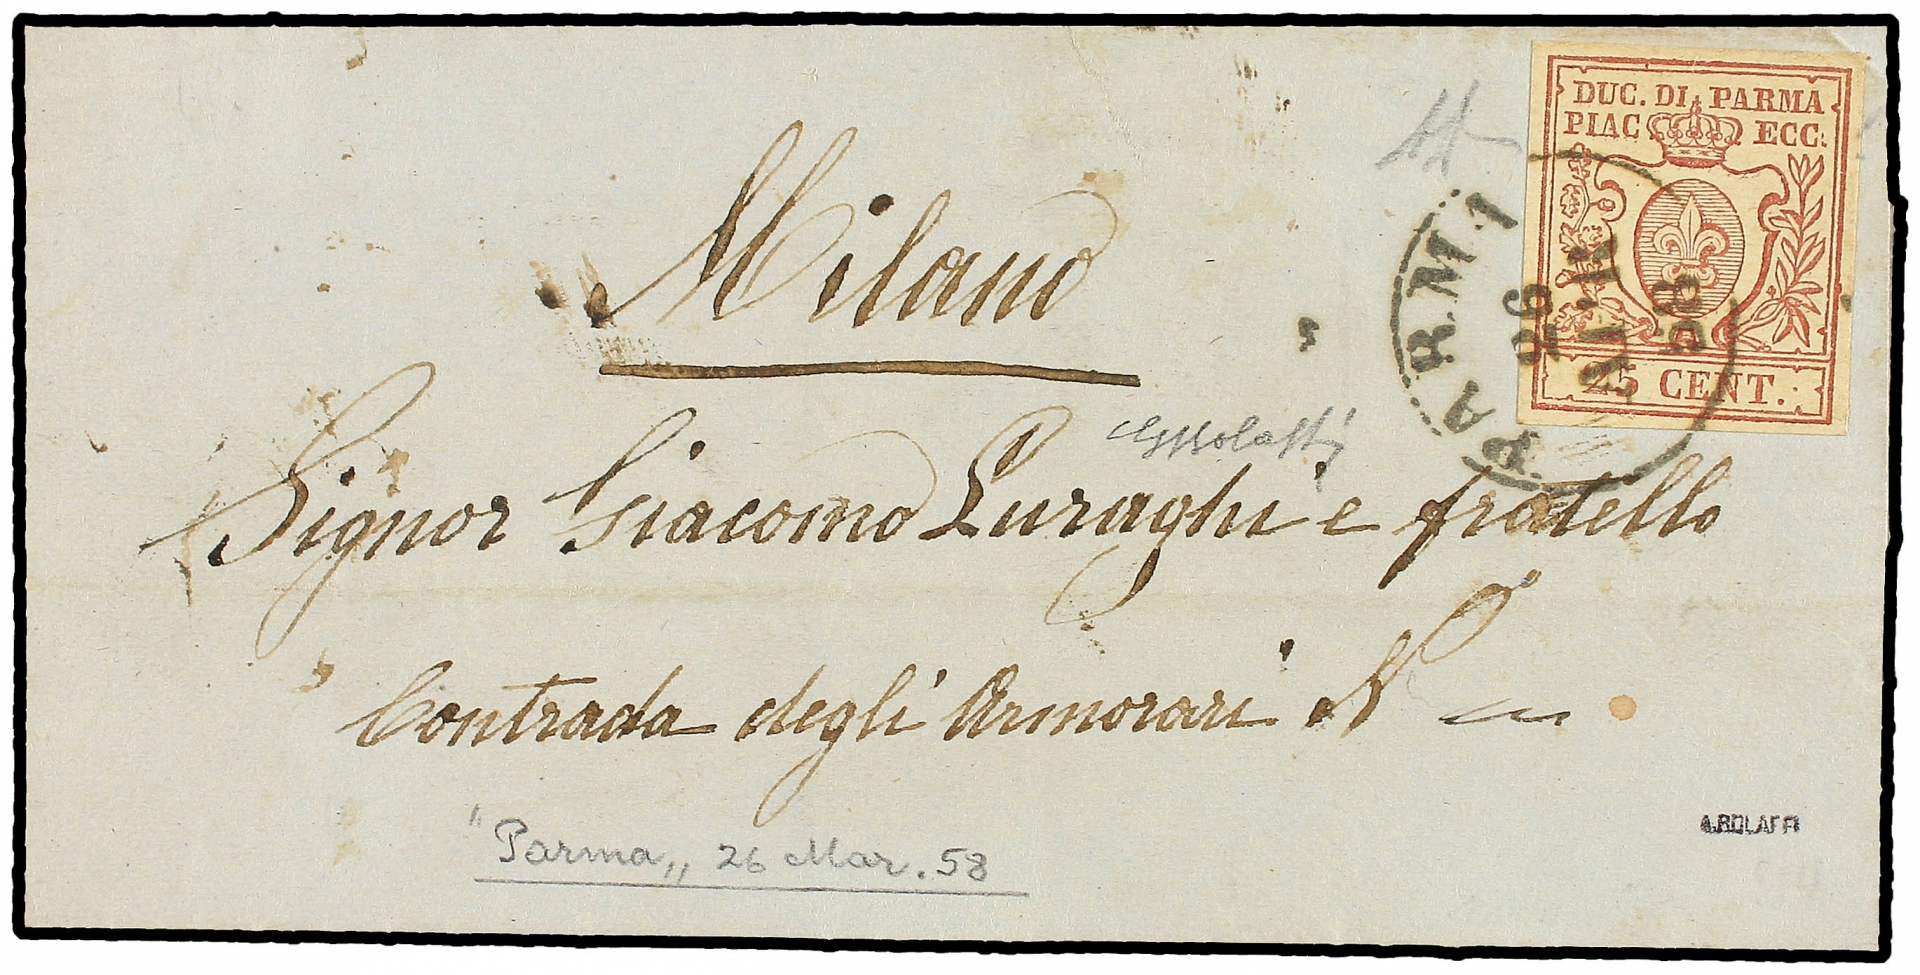 DUC. DI PARMA
PIAC ECC:
25 CENT.
PARMA
26
MAR
58
Milano
Signor Giacomo Luraghi e fratello
Contrada degli Armorari N°
"Parma„ 26 Mar. 58
A.BOLAFFI